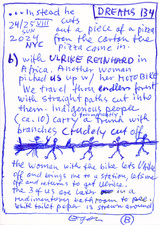 ... Instead he
DREAMS 134
24/25 VIII
cuts
SUN
out a piece of a pizza
2024
from the carton the
NYC
pizza came in.
b) with ULRIKE REINHARD in
Africa. Another woman
pickd us up w/ her MOTOBIKE
We travel thru endless forest
with straight paths cut into
them. indigenous people
(ca. 10) carry a trunk with
branches crudely cut off
the women with the bike lets U/bike
off and brings me to a station, lets me
off and returns to get Ulrike.
The 3 of us are later in a
rudimentary bathroom to pee.
White toilet paper is strewn around
B